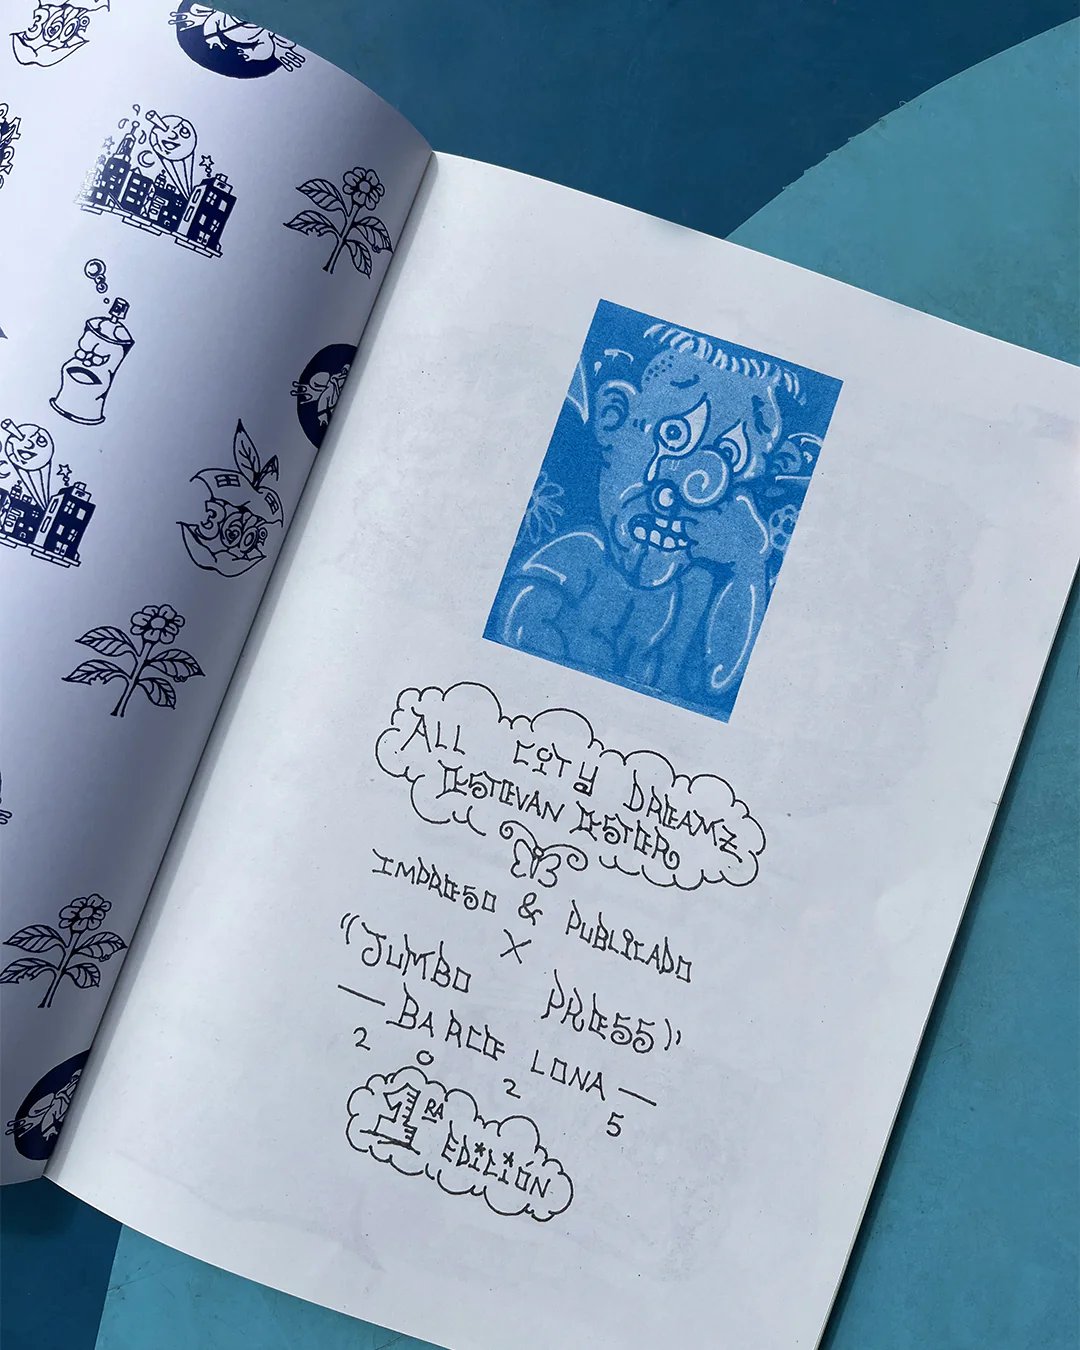 360º
360º
ALL CITY DREAMZ
ESTEVAN ESTER
IMPRESO & PUBLICADO
X
"JUMBO PRESS"
— BARCE LONA —
2 0 2 5
1RA EDICIÓN